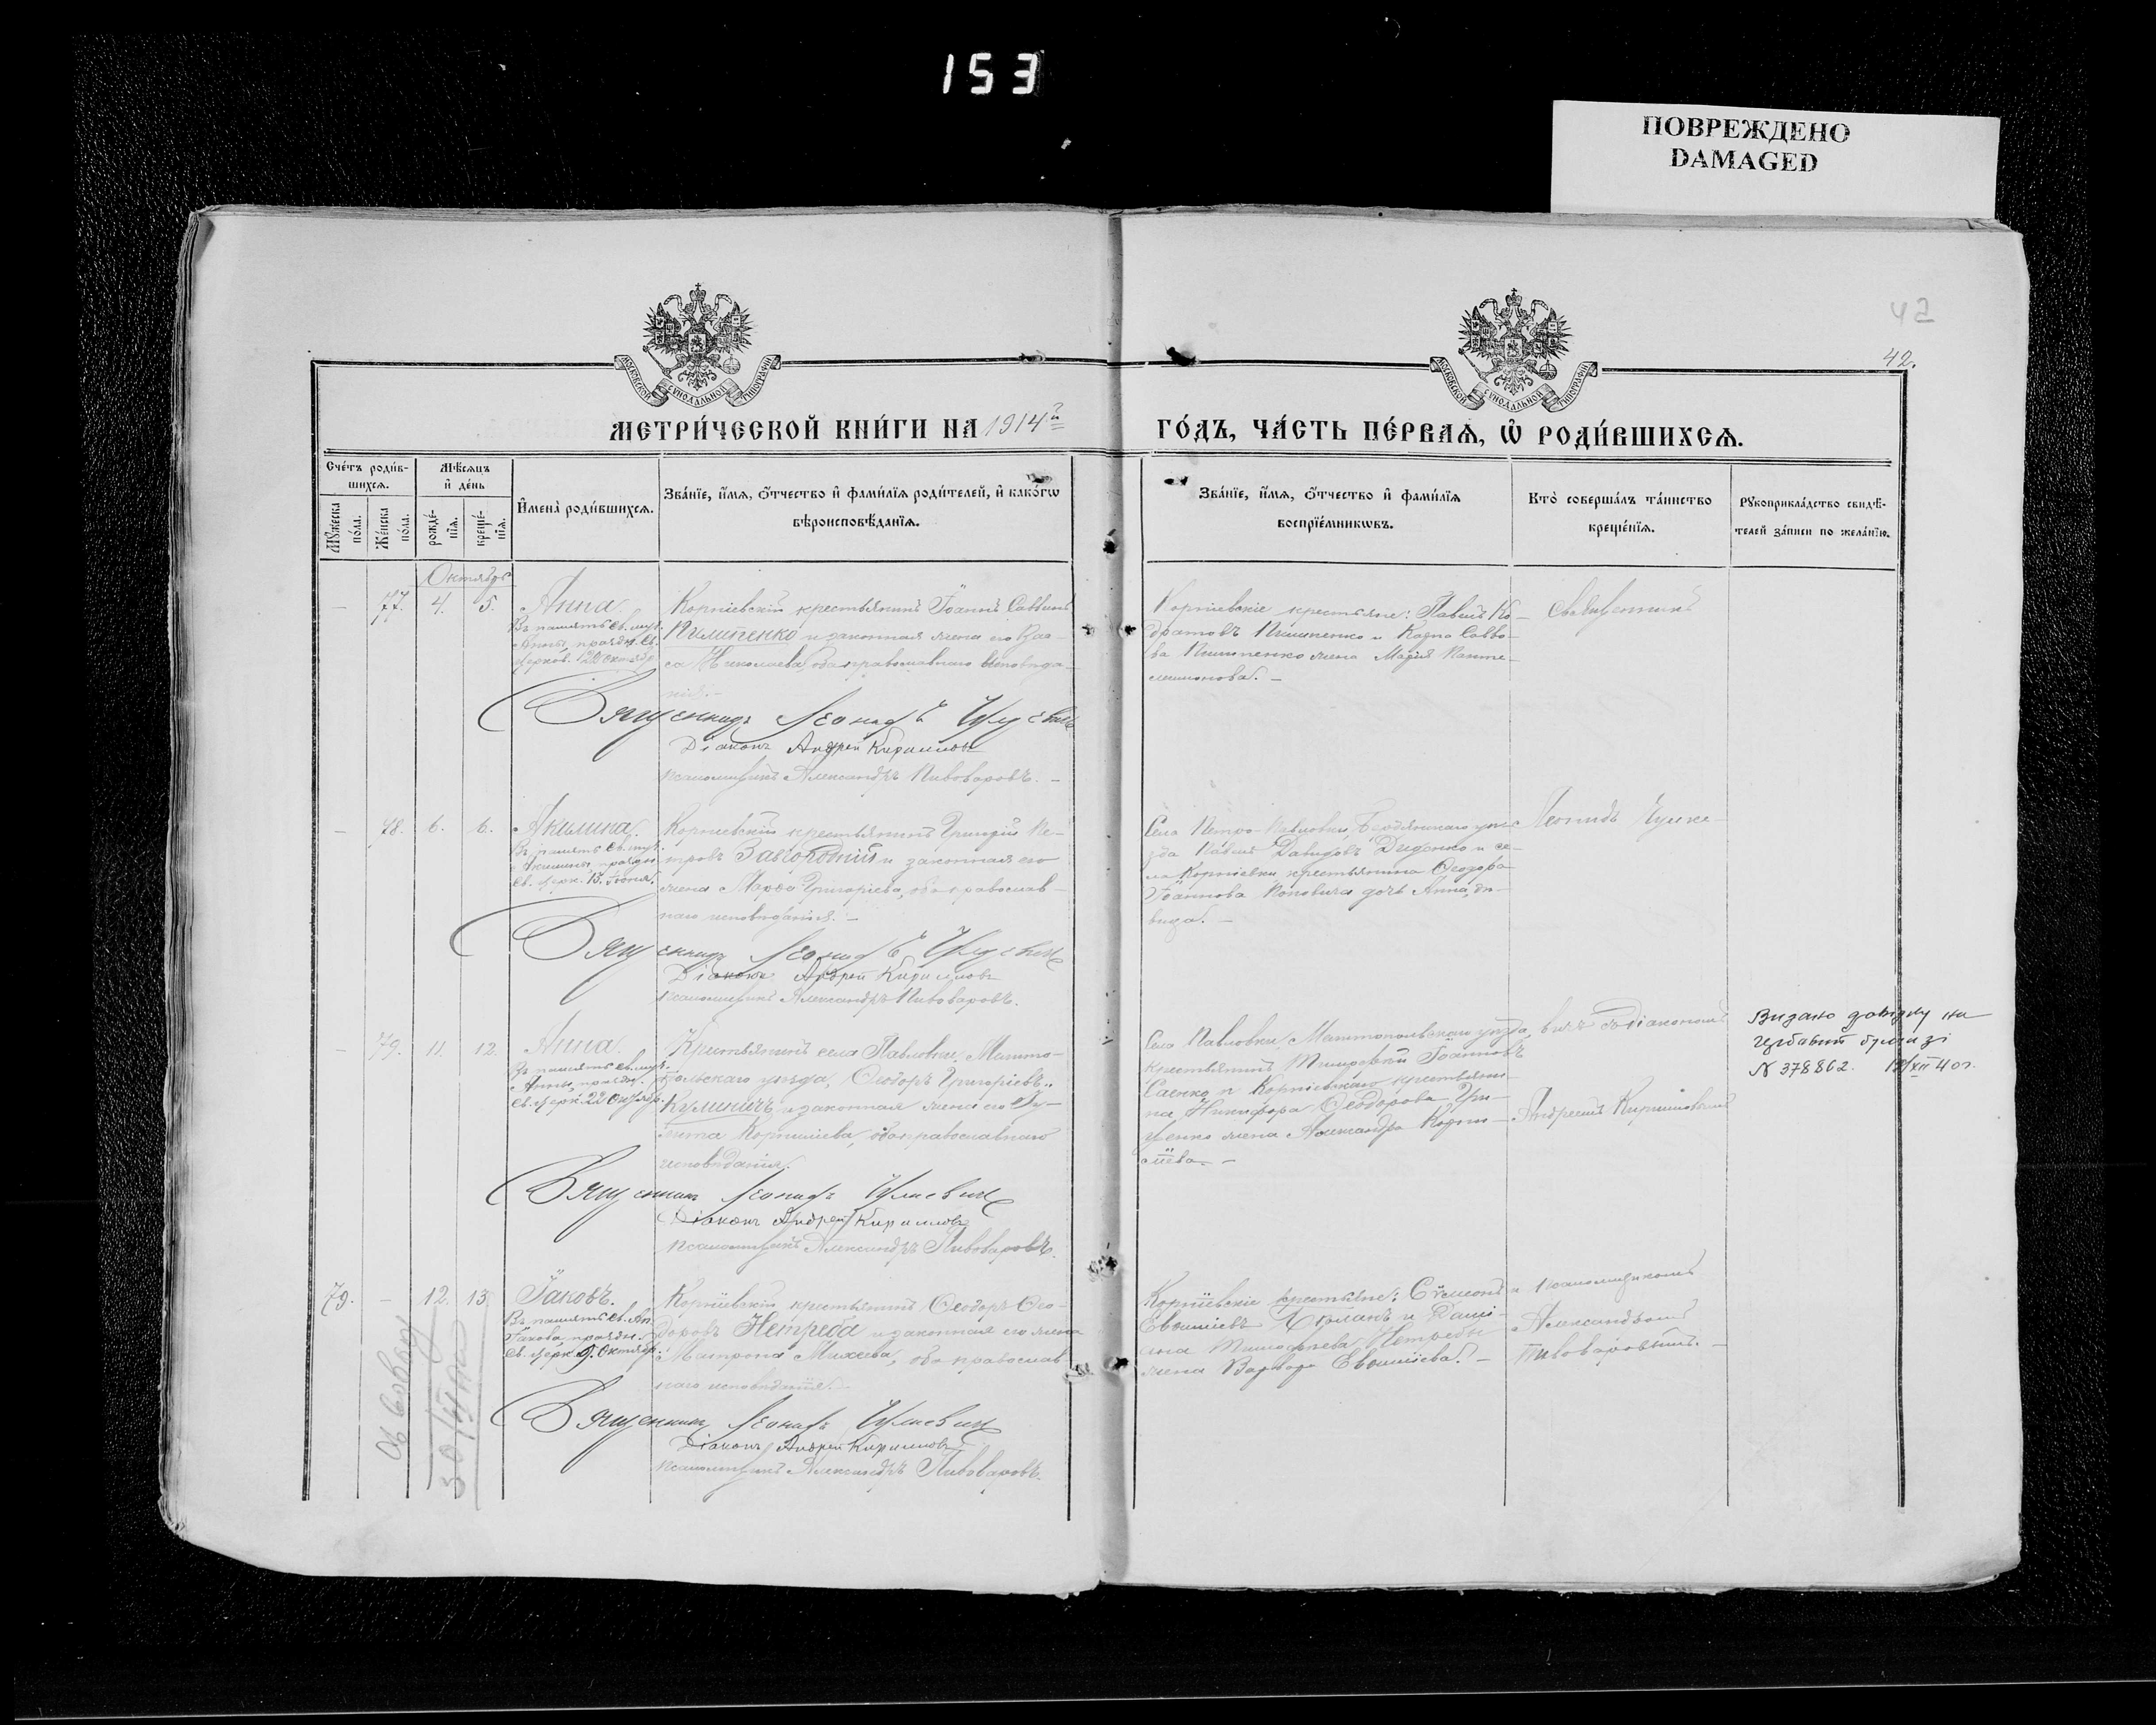 153
ПОВРЕЖДЕНО
DAMAGED
42
42.
МОСКОВСКОЙ СѴНОДАЛЬНОЙ ТИПОГРАФІИ
МОСКОВСКОЙ СѴНОДАЛЬНОЙ ТИПОГРАФІИ
МЕТРИ́ЧЕСКОЙ КНИ́ГИ НА 1914й ГО́ДЪ, ЧА́СТЬ ПЕ́РВАѦ, Ѡ҆ РОДИ́ВШИХСѦ.
Сче́тъ роди́в-
шихсѧ.
Мѣ́сѧцъ
и҆ де́нь
Мꙋ́жеска
по́ла.
Же́нска
по́ла.
рожде́-
нїѧ.
креще́-
нїѧ.
И҆мена̀ роди́вшихсѧ.
Зва́нїе, и҆́мѧ, ѻ҆́тчество и҆ фами́лїѧ роди́телей, и҆ како́гѡ
вѣроисповѣ́данїѧ.
Зва́нїе, и҆́мѧ, ѻ҆́тчество и҆ фами́лїѧ
воспрїе́мникѡвъ.
Кто̀ соверша́лъ та́инство
креще́нїѧ.
Рꙋкоприкла́дство свидѣ́-
телей за́писи по жела́нїю.
Октябрь
— 77. 4. 5. Анна.
Въ память св. муч.
Анны, праздн. св.
церков. 22 октябр.
Корніевскій крестьянинъ Іоаннъ Саввинъ
Пилипенко и законная жена его Вас-
са Николаева, оба православнаго исповѣда-
нія.-
Священникъ Леонидъ
Діаконъ Андрей Кирилловъ
Псаломщикъ Александръ Пивоваровъ. -
Корніевскіе крестьяне: Павелъ Ко-
дратовъ Пилипенко и Карпа Савво-
ва Пилипенко жена Марія Панте-
леимонова. -
Священникъ
— 78. 6. 6. Акилина.
Въ память св. муч.
Акилины, праздн.
св. церк. 13. Іюня.
Корніевскій крестьянинъ Григорій Пе-
тровъ Завгородній и законная его
жена Марѳа Григоріева, оба православ-
наго исповѣданія. -
Священникъ Леонидъ
Діаконъ Андрей Кирилловъ
Псаломщикъ Александръ Пивоваровъ.
Села Петро-Павловки, Бердянскаго уѣз-
да Павелъ Давидовъ Диденко и се-
ла Корніевки, крестьянина Ѳеодора
Іоаннова Поповича дочь Анна, дѣ-
вица. -
Леонидъ
— 79. 11. 12. Анна.
Въ память св. муч.
Анны, праздн.
св. церк. 22 Октябр.
Крестьянинъ села Павловки, Мелито-
польскаго уѣзда, Ѳеодоръ Григоріевъ
Кулиничъ и законная жена его
Корниліева, оба православнаго
исповѣданія.
Священникъ Леонидъ
Діаконъ Андрей Кирилловъ
Псаломщикъ Александръ Пивоваровъ.
Села Павловки, Мелитопольскаго уѣзда,
крестьянинъ Тимоѳей Іоанновъ
Саенко и Корніевскаго крестьяни-
на Никифора Ѳеодорова Гри-
ценко жена Александра Корни-
ліева. -
съ діакономъ
Андреемъ Кирилловымъ
Видано довідку на
гербовит бумазі
N 378862. 12/XII 40г.
79. — 12. 13. Іаковъ.
Въ память св. Ап.
Іакова, праздн.
св. церк. 9. Октябр.
Корніевскій крестьянинъ Ѳеодоръ Ѳео-
доровъ Нетреба и законная его жена
Матрона Михеева, оба православ-
наго исповѣданія. -
Священникъ Леонидъ
Діаконъ Андрей Кирилловъ
Псаломщикъ Александръ Пивоваровъ.
Корніевскіе крестьяне: Сѵмеонъ
Евѳиміевъ и Дани-
ила Тимоѳеева Нетребы
жена Варвара Евѳиміева. -
и псаломщикомъ
Александромъ
Пивоваровымъ. -